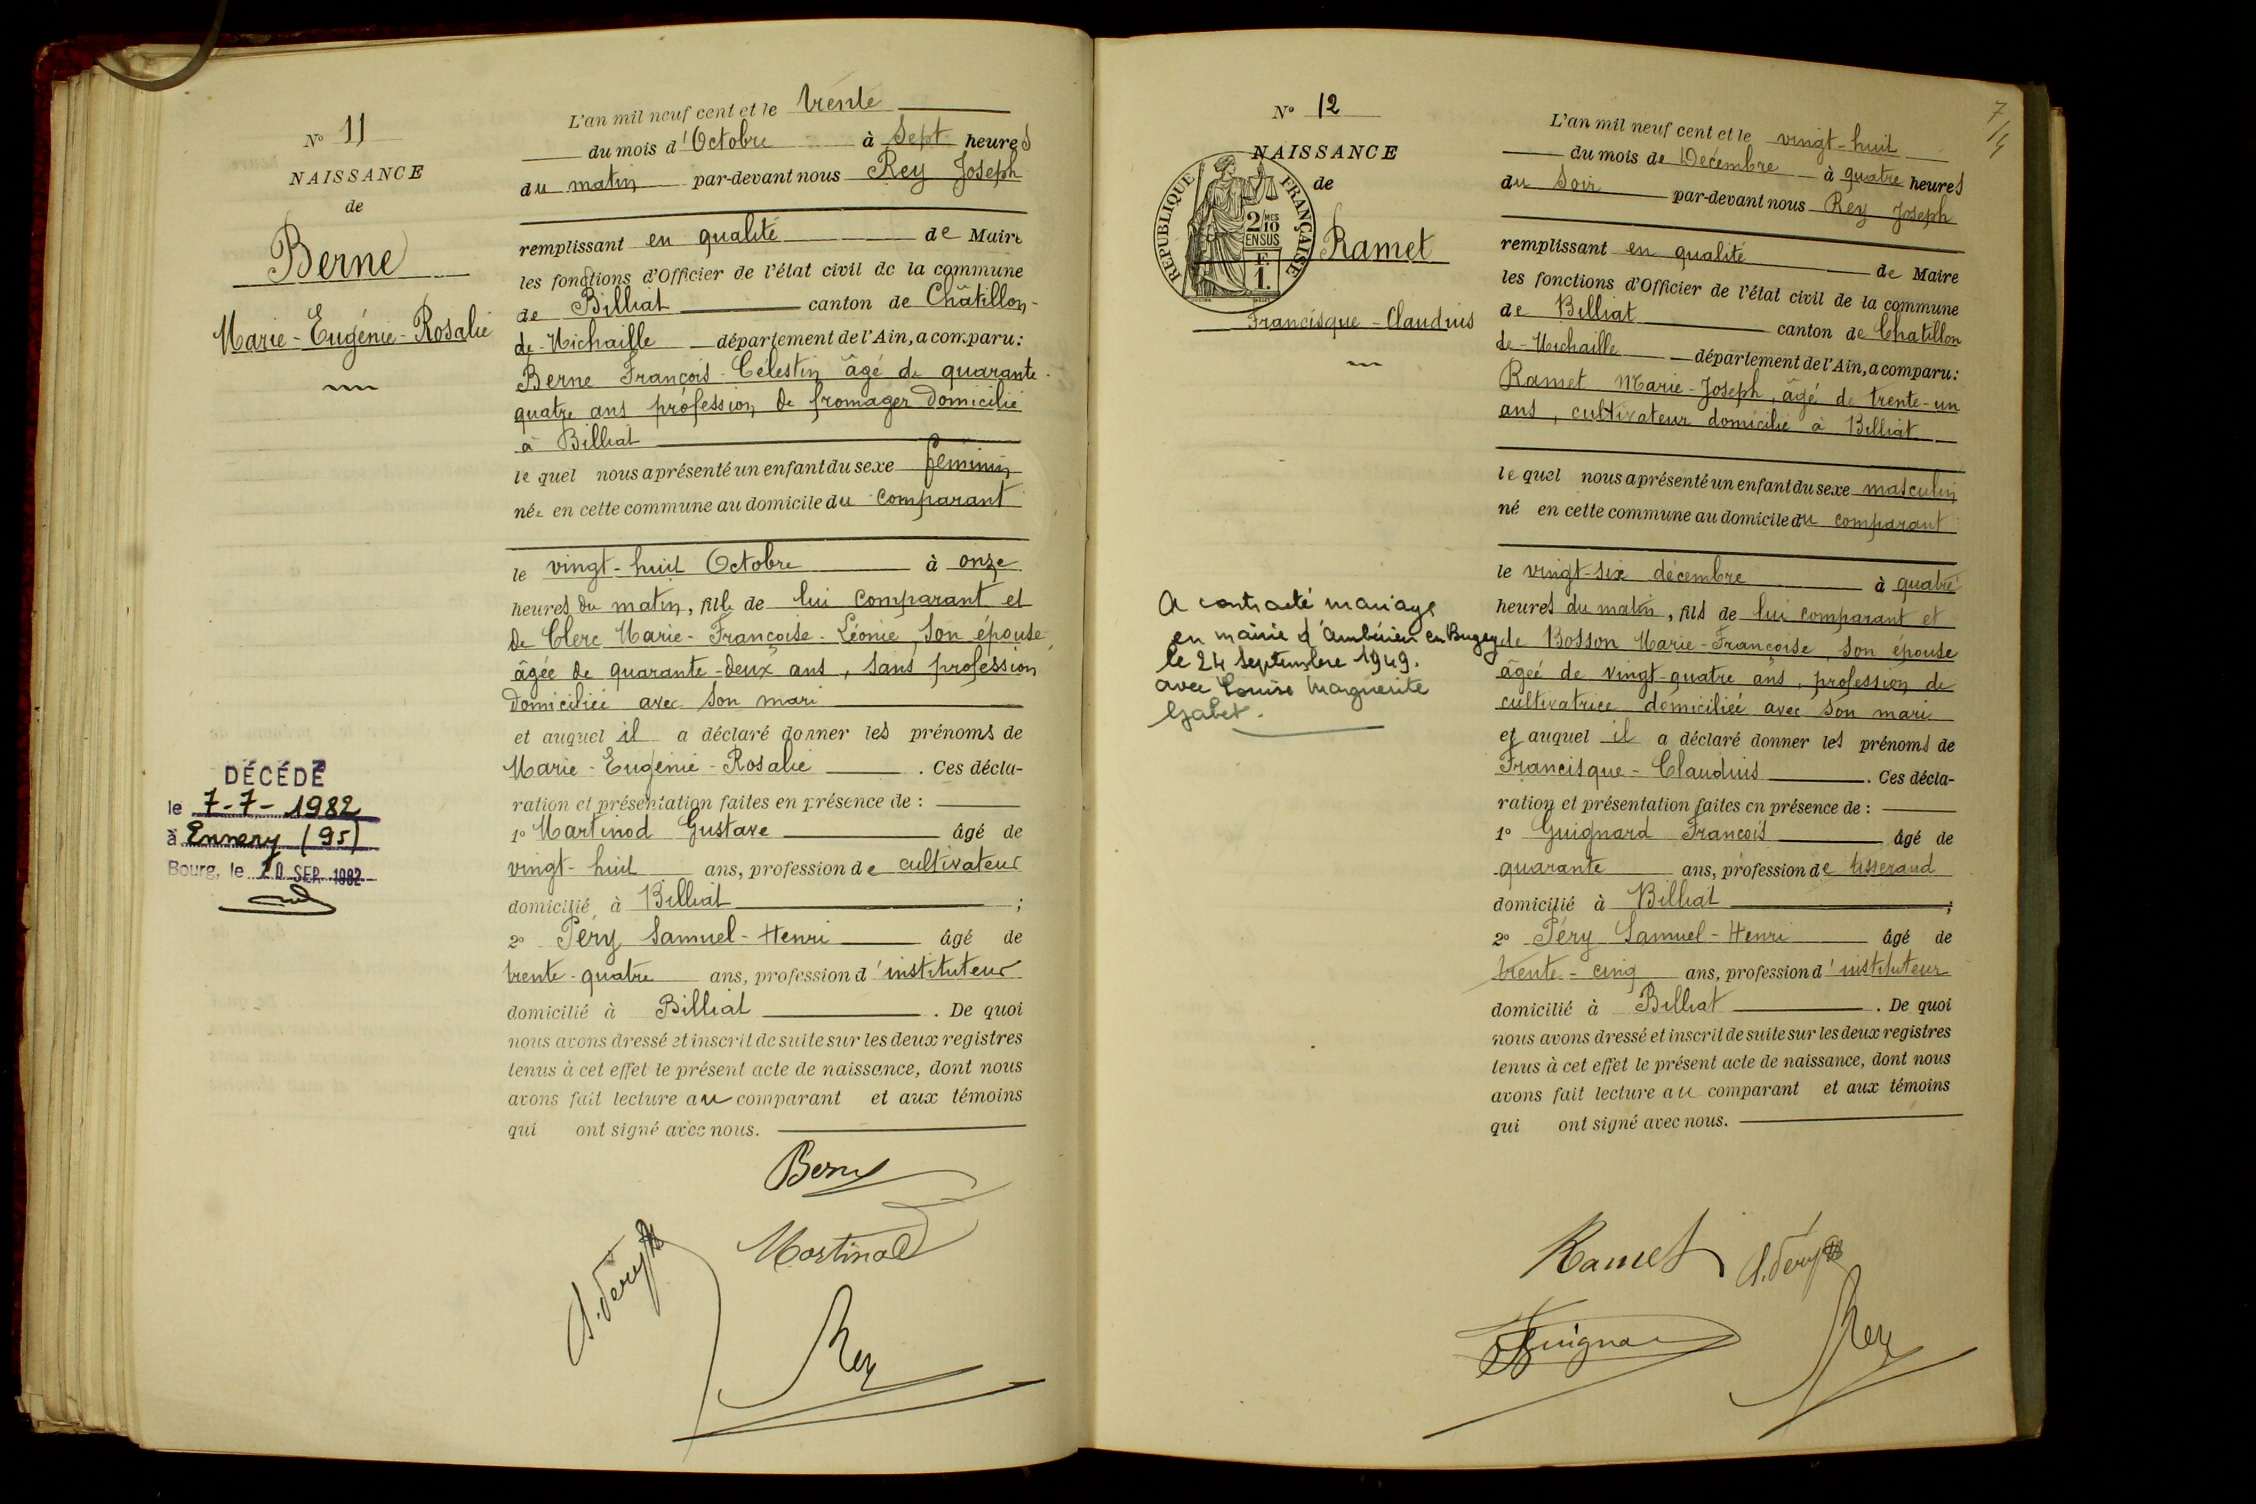 N° 11
NAISSANCE
de
Berne
Marie-Eugénie-Rosalie
DÉCÉDÉ
le 7-7-1982
à Ennery (95)
Bourg, le 10 SEP. 1982
L'an mil neuf cent et le trente
du mois d'Octobre à Sept heures
du matin par-devant nous Rey Joseph
remplissant en qualité de Maire
les fonctions d'Officier de l'état civil de la commune
de Billiat canton de Châtillon-
de-Michaille département de l'Ain, a comparu:
Berne François-Célestin âgé de quarante-
quatre ans profession de fromager domicilié
à Billiat
lequel nous a présenté un enfant du sexe féminin
née en cette commune au domicile du comparant
le vingt-huit Octobre à onze
heures du matin, fille de lui comparant et
de Clerc Marie-Françoise-Léonie, son épouse,
âgée de quarante-deux ans, sans profession
domiciliée avec son mari
et auquel il a déclaré donner les prénoms de
Marie-Eugénie-Rosalie. Ces décla-
ration et présentation faites en présence de :
1° Martinod Gustave âgé de
vingt-huit ans, profession de cultivateur
domicilié à Billiat ;
2° Péry Samuel-Henri âgé de
trente-quatre ans, profession d'instituteur
domicilié à Billiat. De quoi
nous avons dressé et inscrit de suite sur les deux registres
tenus à cet effet le présent acte de naissance, dont nous
avons fait lecture au comparant et aux témoins
qui ont signé avec nous.
Berne
Martinod
S. Péry
Rey
7/4
N° 12
NAISSANCE
de
RÉPUBLIQUE FRANÇAISE
2/10 MES
EN SUS
F.
1.
Ramet
Francisque-Claudius
A contracté mariage
en mairie d'Ambérieu en Bugey
le 24 septembre 1949.
avec Louise Marguerite
Gabet.
L'an mil neuf cent et le vingt-huit
du mois de Décembre à quatre heures
du soir par-devant nous Rey Joseph
remplissant en qualité de Maire
les fonctions d'Officier de l'état civil de la commune
de Billiat canton de Chatillon
de-Michaille département de l'Ain, a comparu:
Ramet Marie-Joseph, âgé de trente-un
ans, cultivateur domicilié à Billiat
lequel nous a présenté un enfant du sexe masculin
né en cette commune au domicile du comparant
le vingt-six décembre à quatre
heures du matin, fils de lui comparant et
de Bosson Marie-Françoise, son épouse
âgée de vingt-quatre ans, profession de
cultivatrice domiciliée avec son mari
et auquel il a déclaré donner les prénoms de
Francisque-Claudius. Ces décla-
ration et présentation faites en présence de :
1° Guignard François âgé de
quarante ans, profession de tisserand
domicilié à Billiat ;
2° Péry Samuel-Henri âgé de
trente-cinq ans, profession d'instituteur
domicilié à Billiat. De quoi
nous avons dressé et inscrit de suite sur les deux registres
tenus à cet effet le présent acte de naissance, dont nous
avons fait lecture au comparant et aux témoins
qui ont signé avec nous.
Ramet
S. Péry
Guignar
Rey